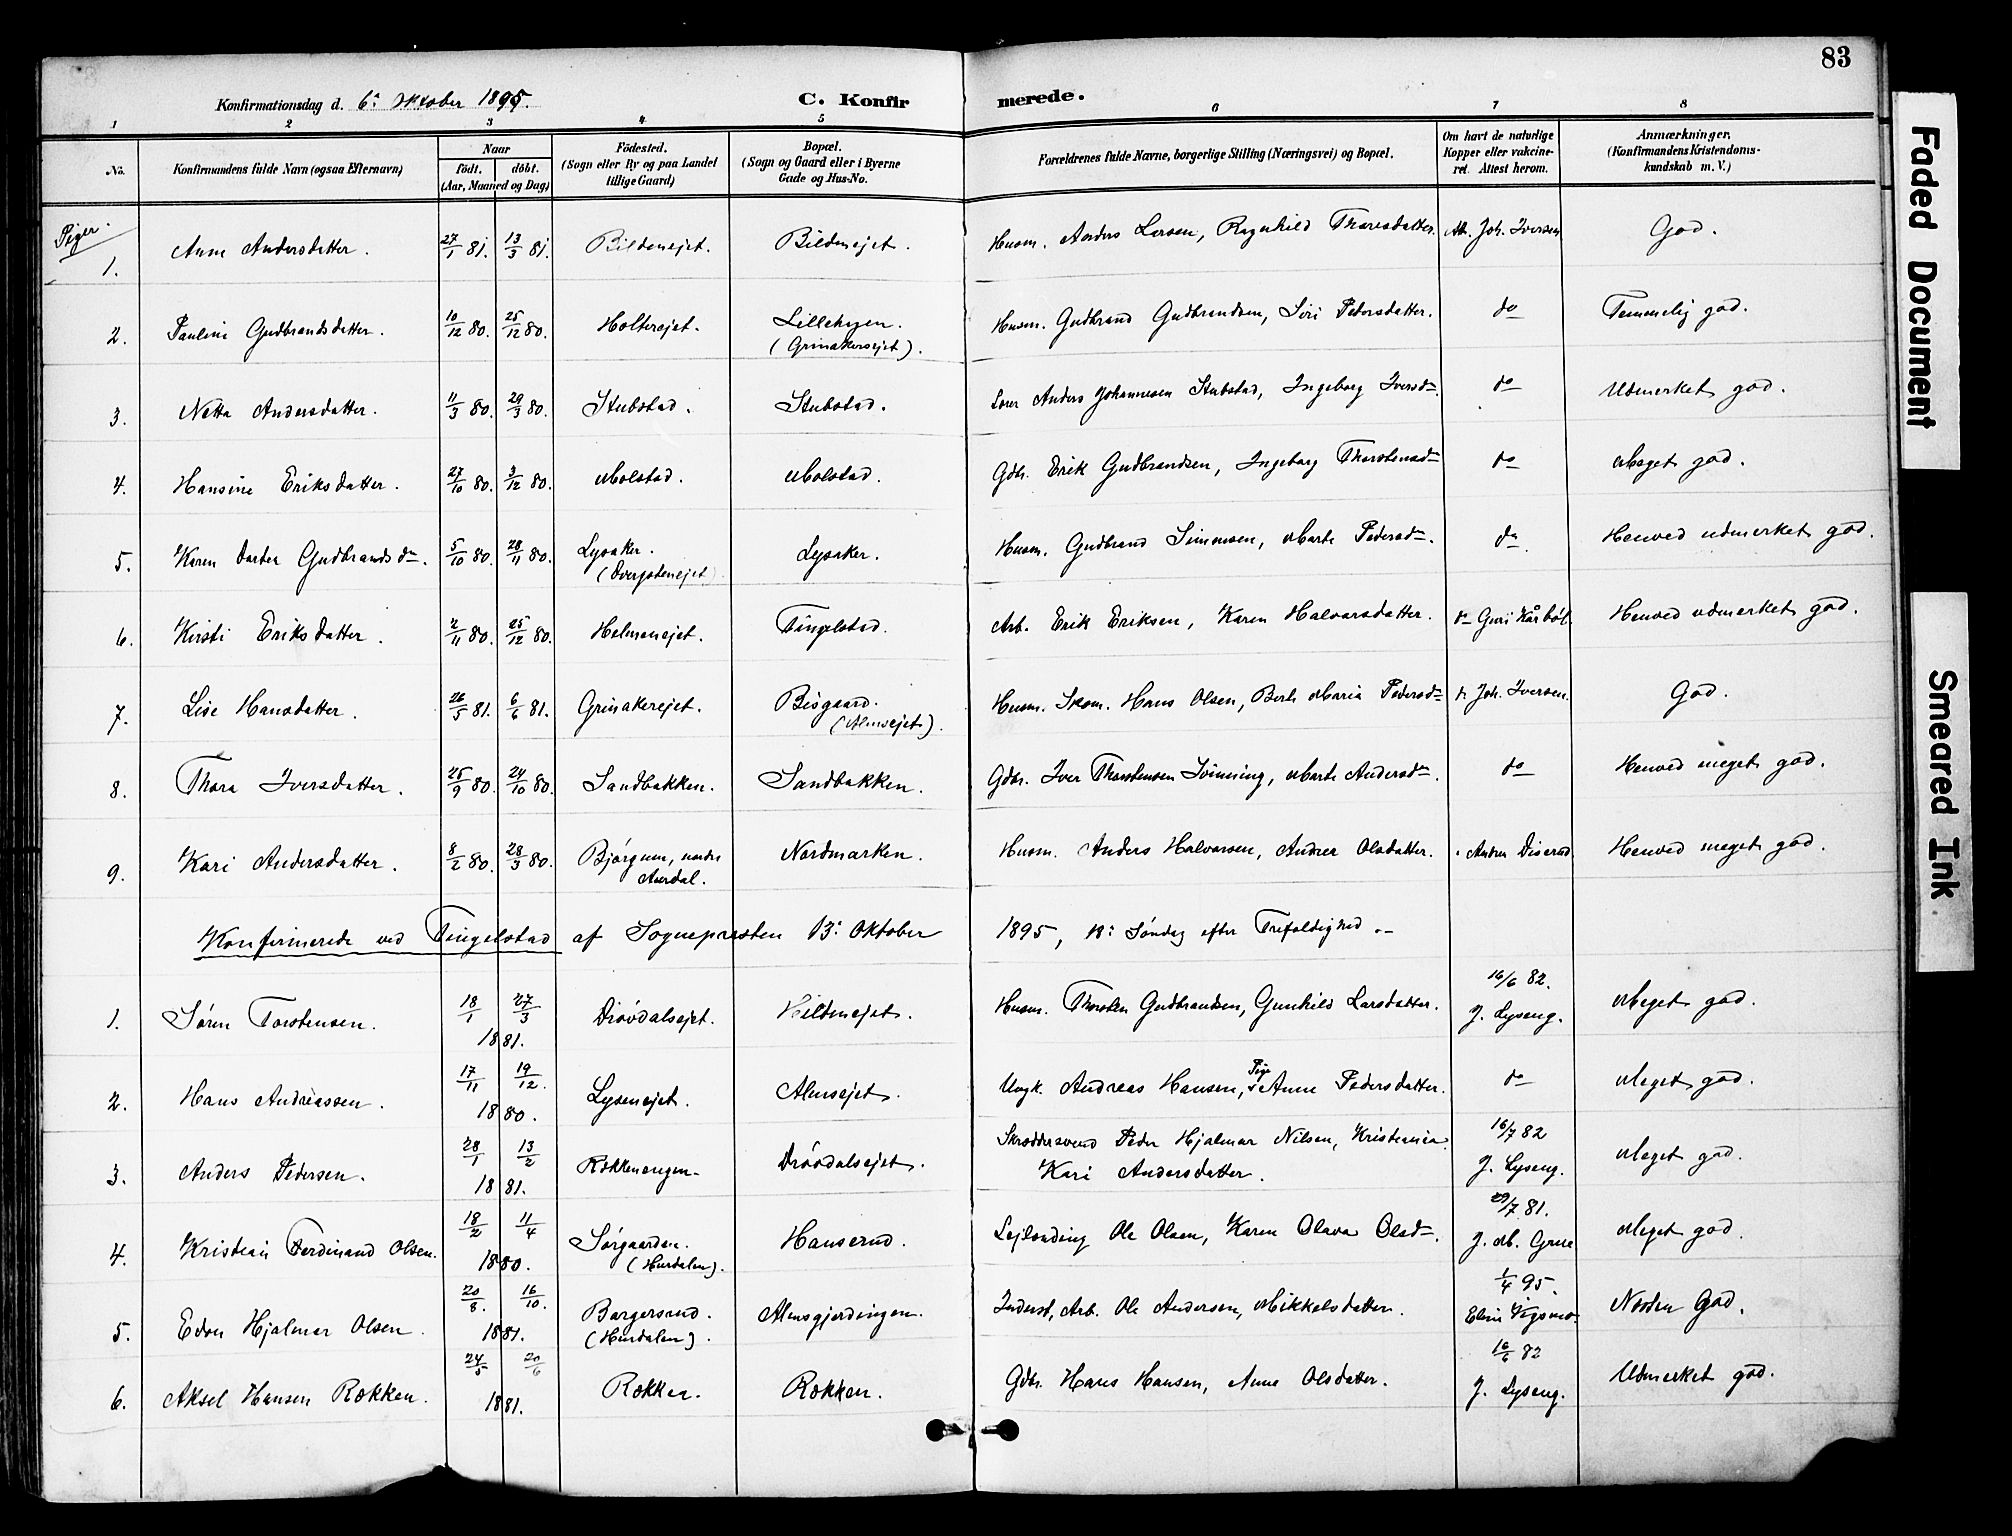 83
Konfirmationsdag d. 6: Oktober 1895. C. Konfirmerede.
1 2 3 4 5 6 7 8
No. Konfirmandens fulde Navn (ogsaa Efternavn) Naar födt. döbt. (Aar, Maaned og Dag) Födested. (Sogn eller By og paa Landet tillige Gaard) Bopæl. (Sogn og Gaard eller i Byerne Gade og Hus-No. Forældrenes fulde Navne, borgerlige Stilling (Næringsvei) og Bopæl. Om havt de naturlige Kopper eller vakcineret. Attest herom. Anmærkninger. (Konfirmandens Kristendomskundskab m.V.)
Piger.
1. Anne Andersdatter. 27/1 81. 13/3 81. Bildenejet. Bildenejet. Husm. Anders Larsen, Ragnhild Thoresdatter. Att. Joh. Iversen God.
2. Pauline Gudbrandsdatter. 10/12 80. 25/12 80. Holterejet. Lillehagen. (Grinakersejet). Husm. Gudbrand Gudbrandsen, Siri Pedersdatter. do Temmelig god.
3. Netta Andersdatter. 11/3 80. 29/3 80. Stubstad. Stubstad. Anders Johannesen Stubstad, Ingeborg Iversdr. do Udmerket god.
4. Hansine Eriksdatter. 27/10 80. 3/12 80. Molstad. Molstad. Gdbr. Erik Gudbrandsen, Ingeborg Thorstensdr do Meget god.
5. Karen Dorthea Gudbrandsdr. 5/10 80. 28/11 80. Lysaker. (Dvergstenejet). Lysaker. Husm. Gudbrand Simensen, Marte Pedersdr. do Henved udmerket god.
6. Kirsti Eriksdatter. 2/11 80. 25/12 80. Helmenejet. Tingelstad. Arb. Erik Eriksen, Karen Halvorsdatter. do Guri Kårböl. Henved udmerket god.
7. Lise Hansdatter. 26/5 81. 6/6 81. Grinakerejet. Bisgaard. (Almsejet). Husm. Skom. Hans Olsen, Berte Marie Pedersdr do Joh. Iversen. God.
8. Thora Iversdatter. 25/9 80. 24/10 80. Sandbakken. Sandbakken. Gdbr. Iver Thorstensen Svinning, Marte Andersdr. do Henved meget god.
9. Kari Andersdatter. 8/2 80. 28/3 80. Bjørgum, nordre Aurdal. Nordmarken. Husm. Anders Halvorsen, Andrea Olsdatter. Henved meget god.
Konfirmerede ved Tingelstad af Sognepresten 13: Oktober 1895, 18: Søndag efter Trefoldighed.-
1. Søren Torstensen. 18/1 27/3 1881. Drövdalsejet. Hildenejet. Husm. Thorsten Gudbrandsen, Gunhild Larsdatter. 16/6 82. J. Lyseng. Meget god.
2. Hans Andreassen. 17/11 19/12. 1880. Lysenejet. Almsejet. Ungk. Andreas Hansen, Pige Anne Pedersdatter. do Meget god.
3. Anders Pedersen. 28/1 13/2 1881. Rokkenengen. Drövdalsejet. Skræddersvend Peder Hjalmar Nilsen, Kristiania Kari Andersdatter. 16/7 82 J. Lyseng. Meget god.
4. Kristian Ferdinand Olsen. 18/2 11/4 1880. Sørgaarden. (Hurdalen). Hanserud. Lejlænding Ole Olsen, Karen Olava Olsdr. 29/7 81. J. M. Grue Meget god
5. Edon Hjalmar Olsen. 20/8. 16/10. 1881. Borgersrud. (Hurdalen). Almsgjerdingen. Inderst, Arb. Ole Andersen, Mikkelsdatter. 1/4 95. Eline Næsten God.
6. Aksel Hansen Rokken. 24/5 20/6 1881. Rokken. Rokken. Gdbr. Hans Hansen, Anne Olsdatter. 16/6 82 J. Lyseng. Udmerket god.
Faded Document
Smeared Ink